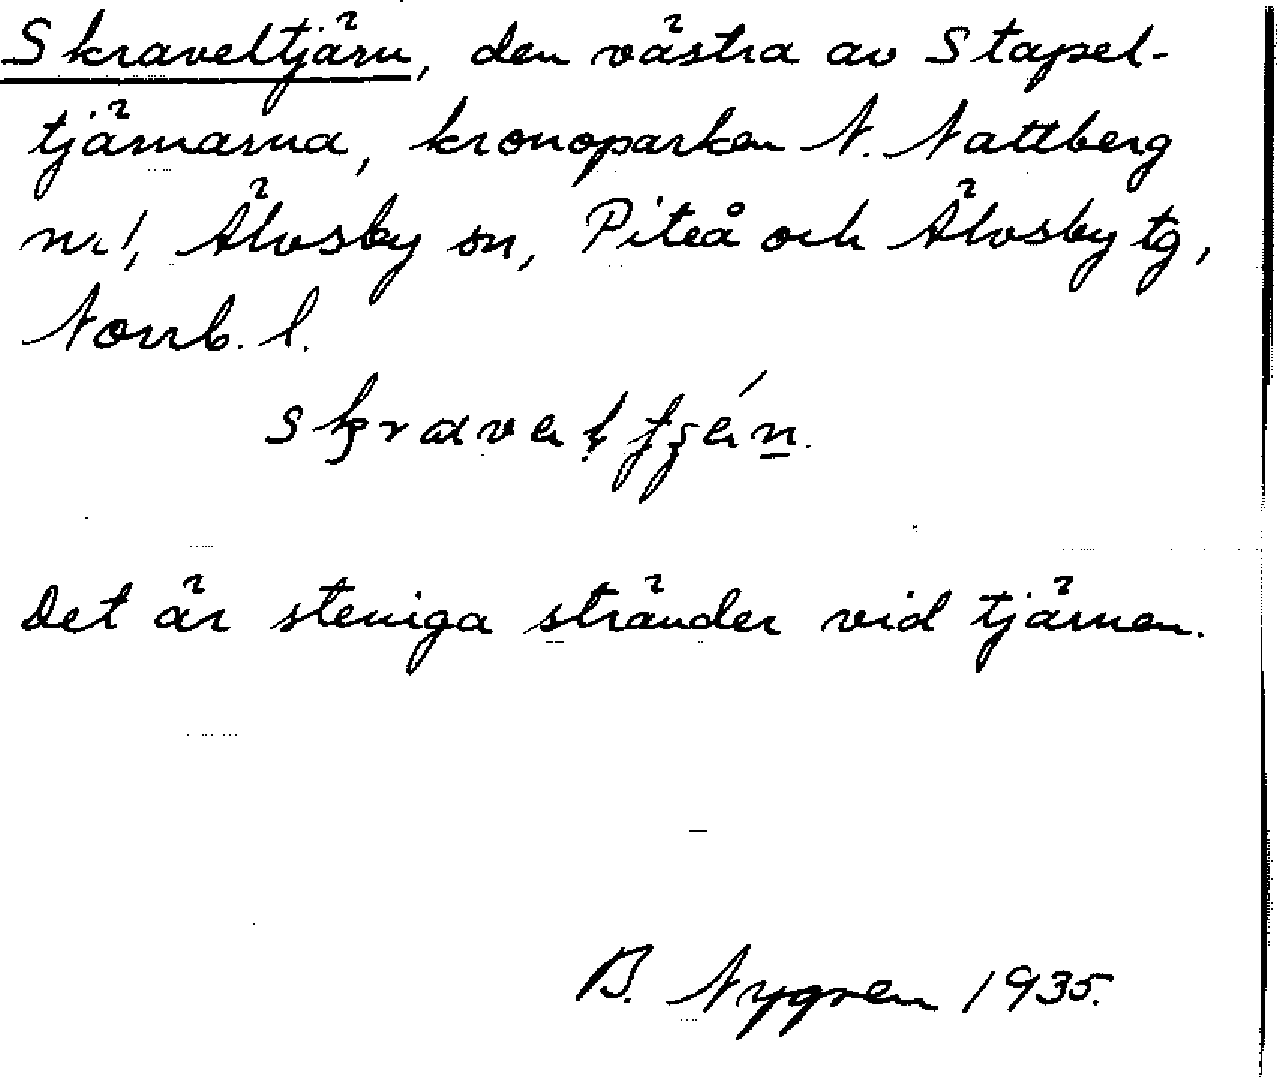 Skraveltjärn, den västra av Stapel-
tjärnarna, kronoparken N. Nattberg
nr 1, Älvsby sn, Piteå och Älvsby tg,
Norrb. l.
Det är steniga stränder vid tjärnen.
B. Nygren 1935.